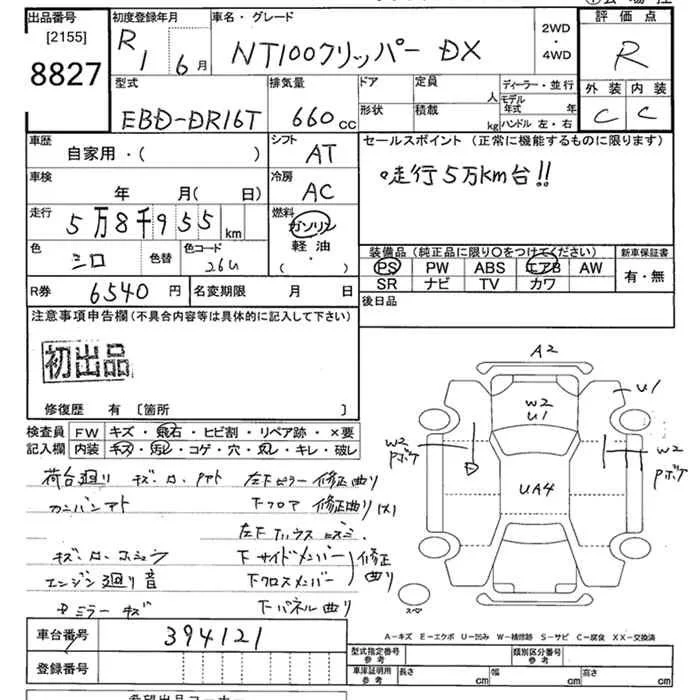 出品番号 初度登録年月 車名・グレード 2WD・4WD 評価点
[2155]
8827
R1 6月 NT100クリッパー DX R
型式 排気量 ドア 定員 人 ディーラー・並行 外装 内装
EBD-DR16T 660cc 形状 積載 kg モデル年式 年 ハンドル 左・右 C C
車歴 自家用・( ) シフト AT
セールスポイント (正常に機能するものに限ります)
。走行5万km台!!
車検 年 月( 日) 冷房 AC
走行 5万8千955km 燃料 ガソリン 軽油 ( ・ )
色 シロ 色替 色コード 26U
装備品 (純正品に限り〇をつけてください) 新車保証書
PS PW ABS エアB AW 有・無
SR ナビ TV カワ
R券 6540円 名変期限 月 日
後日品
注意事項申告欄 (不具合内容等は具体的に記入して下さい)
初出品
修復歴 有 [箇所 ]
検査員 FW キズ・飛石・ヒビ割・リペア跡・×要
記入欄 内装 キズ・汚レ・コゲ・穴・スレ・キレ・破レ
荷台廻り キズ・
カンバンアト
下フロア 修正曲り(X)
下サイドメンバー 修正曲り
エンジン廻り音 下クロスメンバー
ミラーキズ 下パネル曲り
A2
U1
W2
U1
W2
Pボケ
W2
Pボケ
UA4
スペア
A－キズ E－エクボ U－凹み W－補修跡 S－サビ C－腐食 XX－交換済
車台番号 394121
型式指定番号 参考 類別区分番号 参考
登録番号
車庫証明用 参考 長さ cm 幅 cm 高さ cm